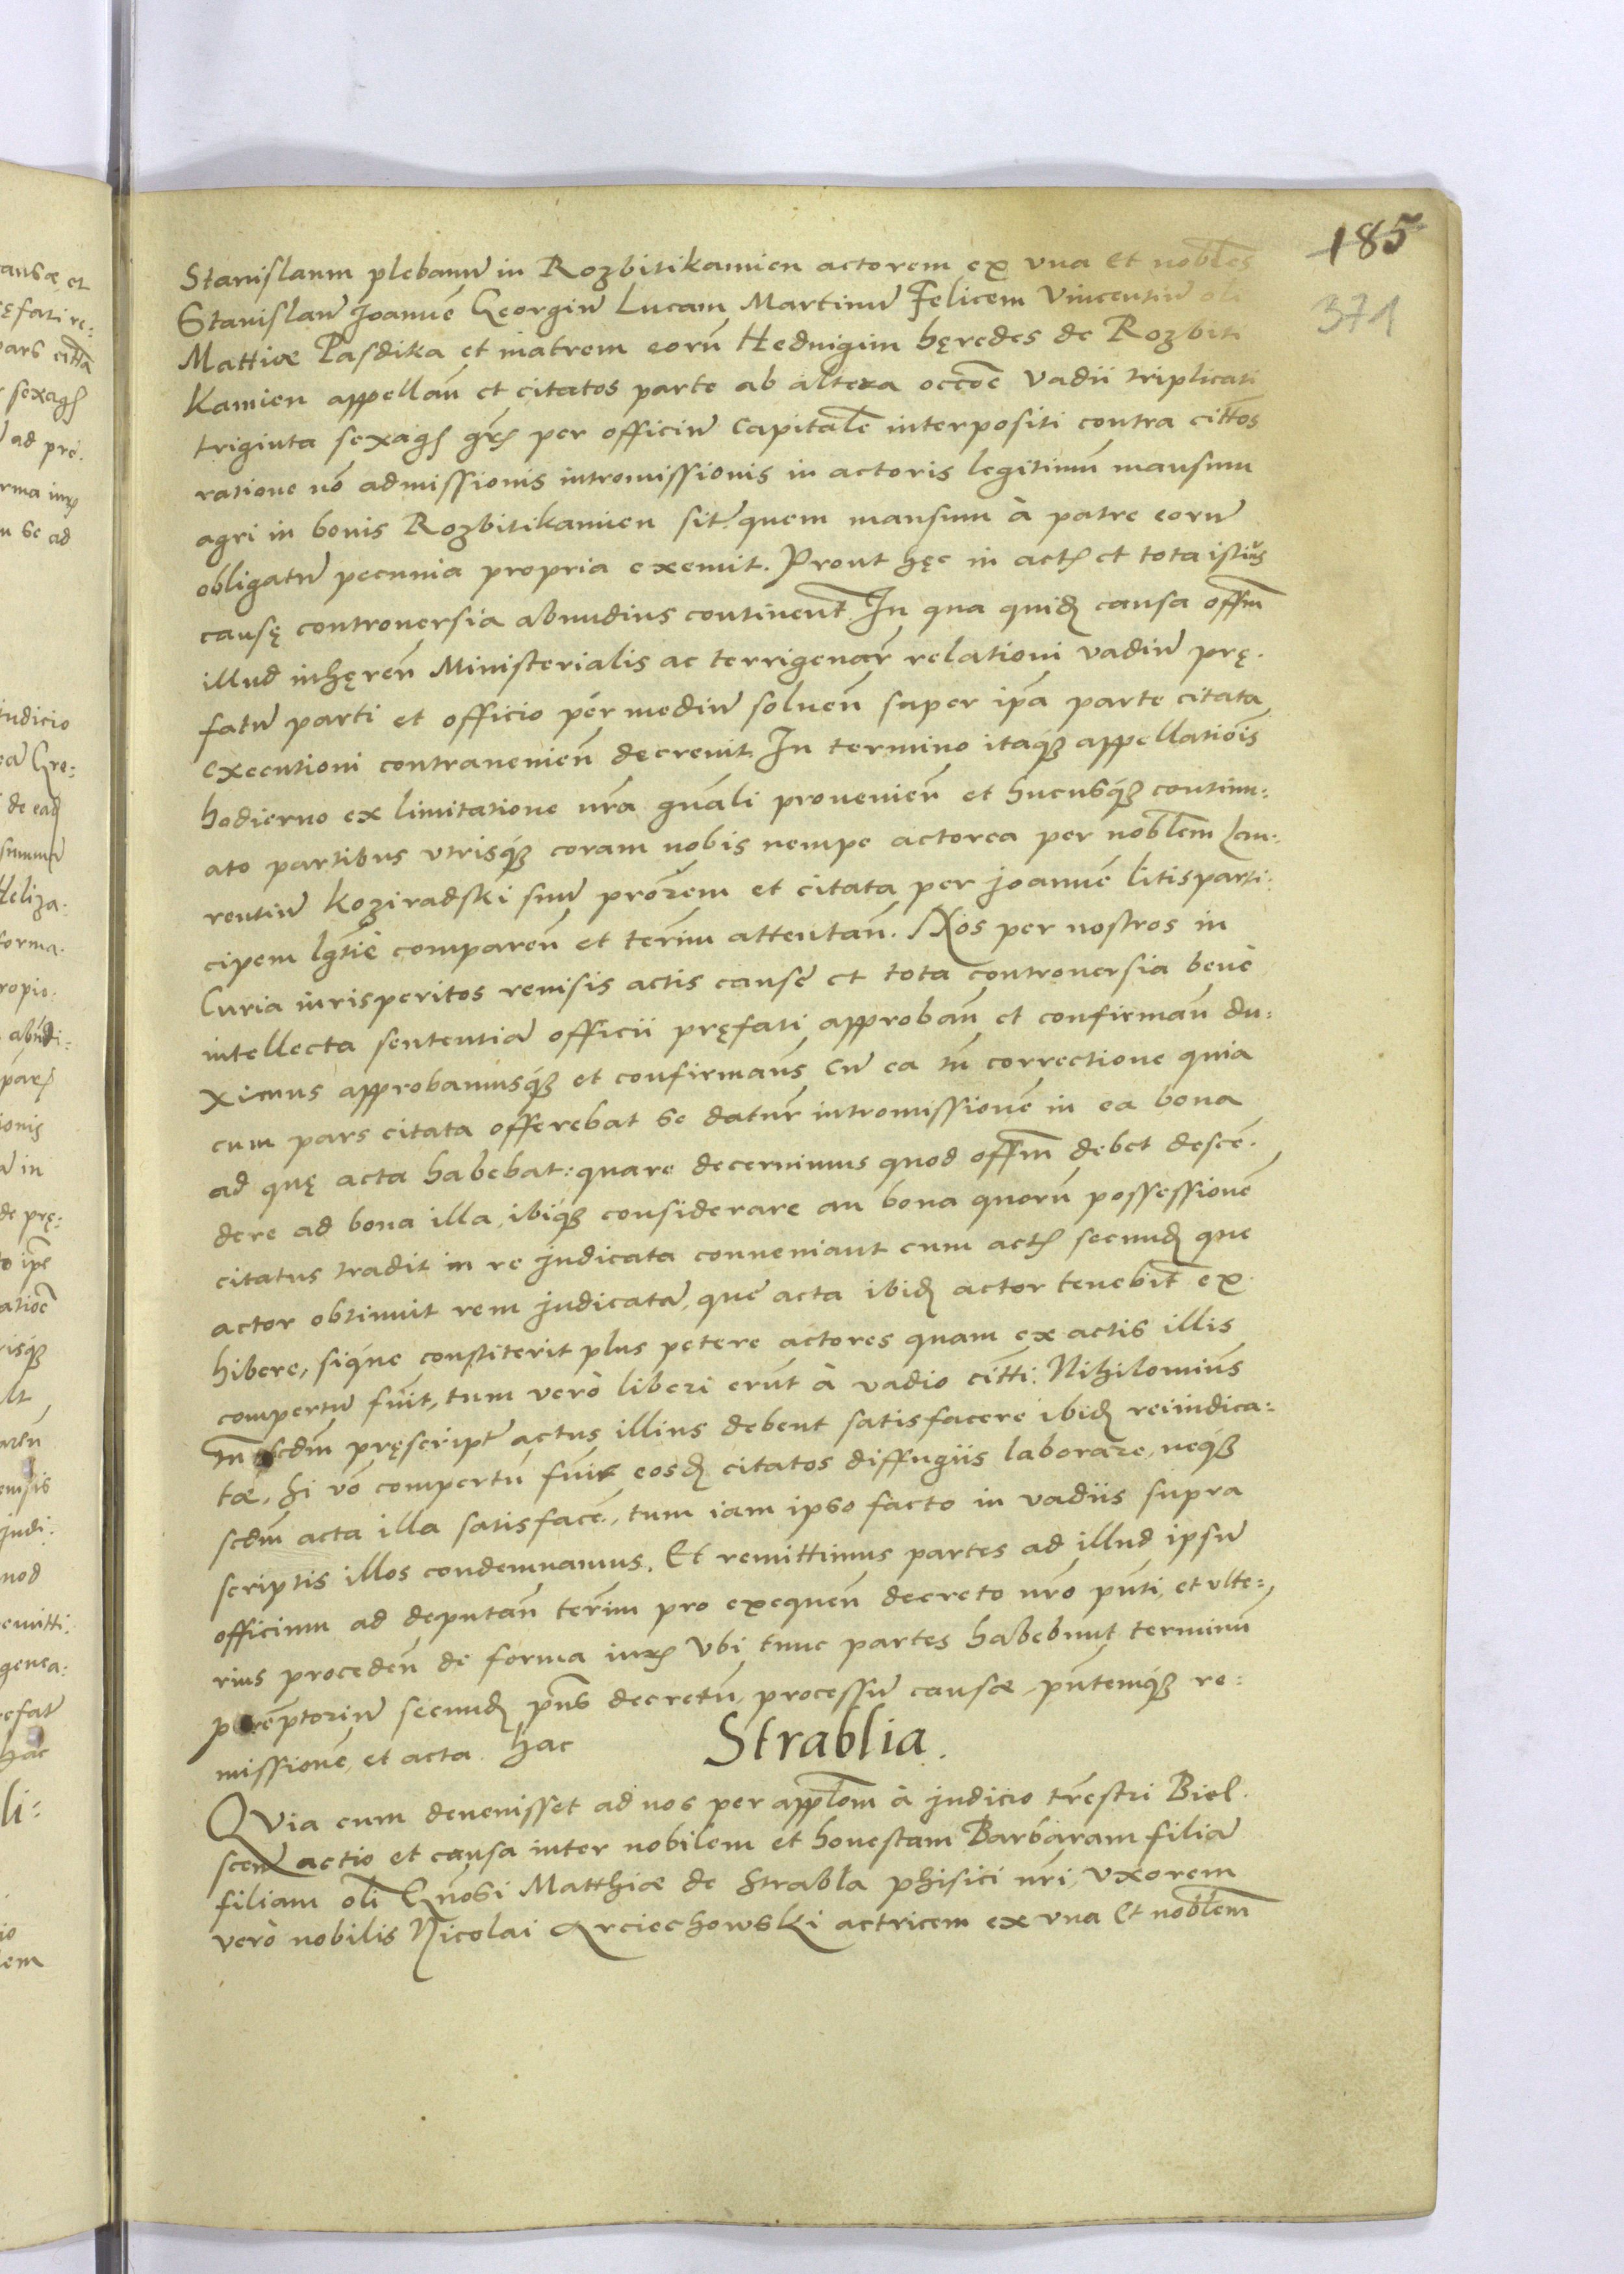 185
371
Stanislaum plebanū in Rozbitikamien actorem ex vna et nobłes
Stanislaū Joannē Georgiū Lucam Martinū Felicem Vincentiū oli
Mattiæ Pasdika et matrem eorū Heduigim hęredes de Rozbiti
Kamien appellan̄ et citatos parte ab altera occōe vadii triplicati
triginta sexagͥ grͥ per officiū Capitałe interpositi contra cittos
ratione nō admissionis intromissionis in actoris legitimū mansum
agri in bonis Rozbitikamien sit̄: quem mansum à patre eorū
obligatū pecunia propria exemit. Prout hęc in actͥ et tota istius
causę controuersia abundius continent̄. In qua quidͥ causa offm̄
illud inhęren̄ Ministerialis ac terrigenar̄ relationi vadiū prę-
fatū parti et officio per mediū soluen̄ super ip̄a parte citata
executioni contrauenien̄ decreuit. In termino itaq́ꝫ appellatiōis
hodierno ex limitatione nr̄a gn̄ali prouenien̄ et hucusq́ꝫ continu:
ato partibus vtrisq́ꝫ coram nobis nempe actorea per nobłem Lau:
rentiū Koziradski suū prōrem et citata per Joannē litisparti:
cipem lgtīe comparen̄ et term̄ attentan̄. Nos per nostros in
Curia iurisperitos reuisis actis causę et tota controuersia benè
intellecta sententiā officii pręfati approban̄ et confirman̄ du:
ximus approbamusq́ꝫ et confirmam̄s Cū ea tn̄ correctione quia
cum pars citata offerebat se daturā intromissionē in ea bona
ad quę acta habebat: quare decernimus quod offm̄ debet descē-
dere ad bona illa, ibiq́ꝫ considerare an bona quorū possessionē
citatus tradit in re judicata conueniant cum actͥ secundͥ que
actor obtinuit rem judicatā, que acta ibidͥ actor tenebit̄ ex
hibere, siq́ue constiterit plus petere actores quam ex actis illis
compertū fuīt, tum verò liberi erūt à vadio citti. Nihilomin̄s
tn̄ scdm̄ pręscript̄ actus illius debent satisfacere ibidͥ reiiudica:
tæ, Si vō compertū fuīt eosdͥ citatos diffugiis laborare, neq́ꝫ
scdm̄ acta illa satisfacē, tum iam ipso facto in vadiis supra
scriptis illos condemnamus. Et remittimus partes ad illud ipsū
officium ad deputan̄ term̄ pro exequen̄ decreto nr̄o pn̄ti, et vlte:
rius proceden̄ de forma iurͥ Vbi tunc partes habebunt terminū
peremptoriū secundͥ pn̄s decretū, processū causæ, pn̄temq́ꝫ re:
missionē, et acta hac
Strablia.
QVia cum deuenisset ad nos per appłom à judicio trēstri Biel-
scen̄ actio et causa inter nobilem et honestam Barbaram filiā
filiam oli Gn̄osi Matthiæ de Strabla phisici nr̄i, vxorem
verò nobilis Nicolai Arciechowski actricem ex vna Et nobłem